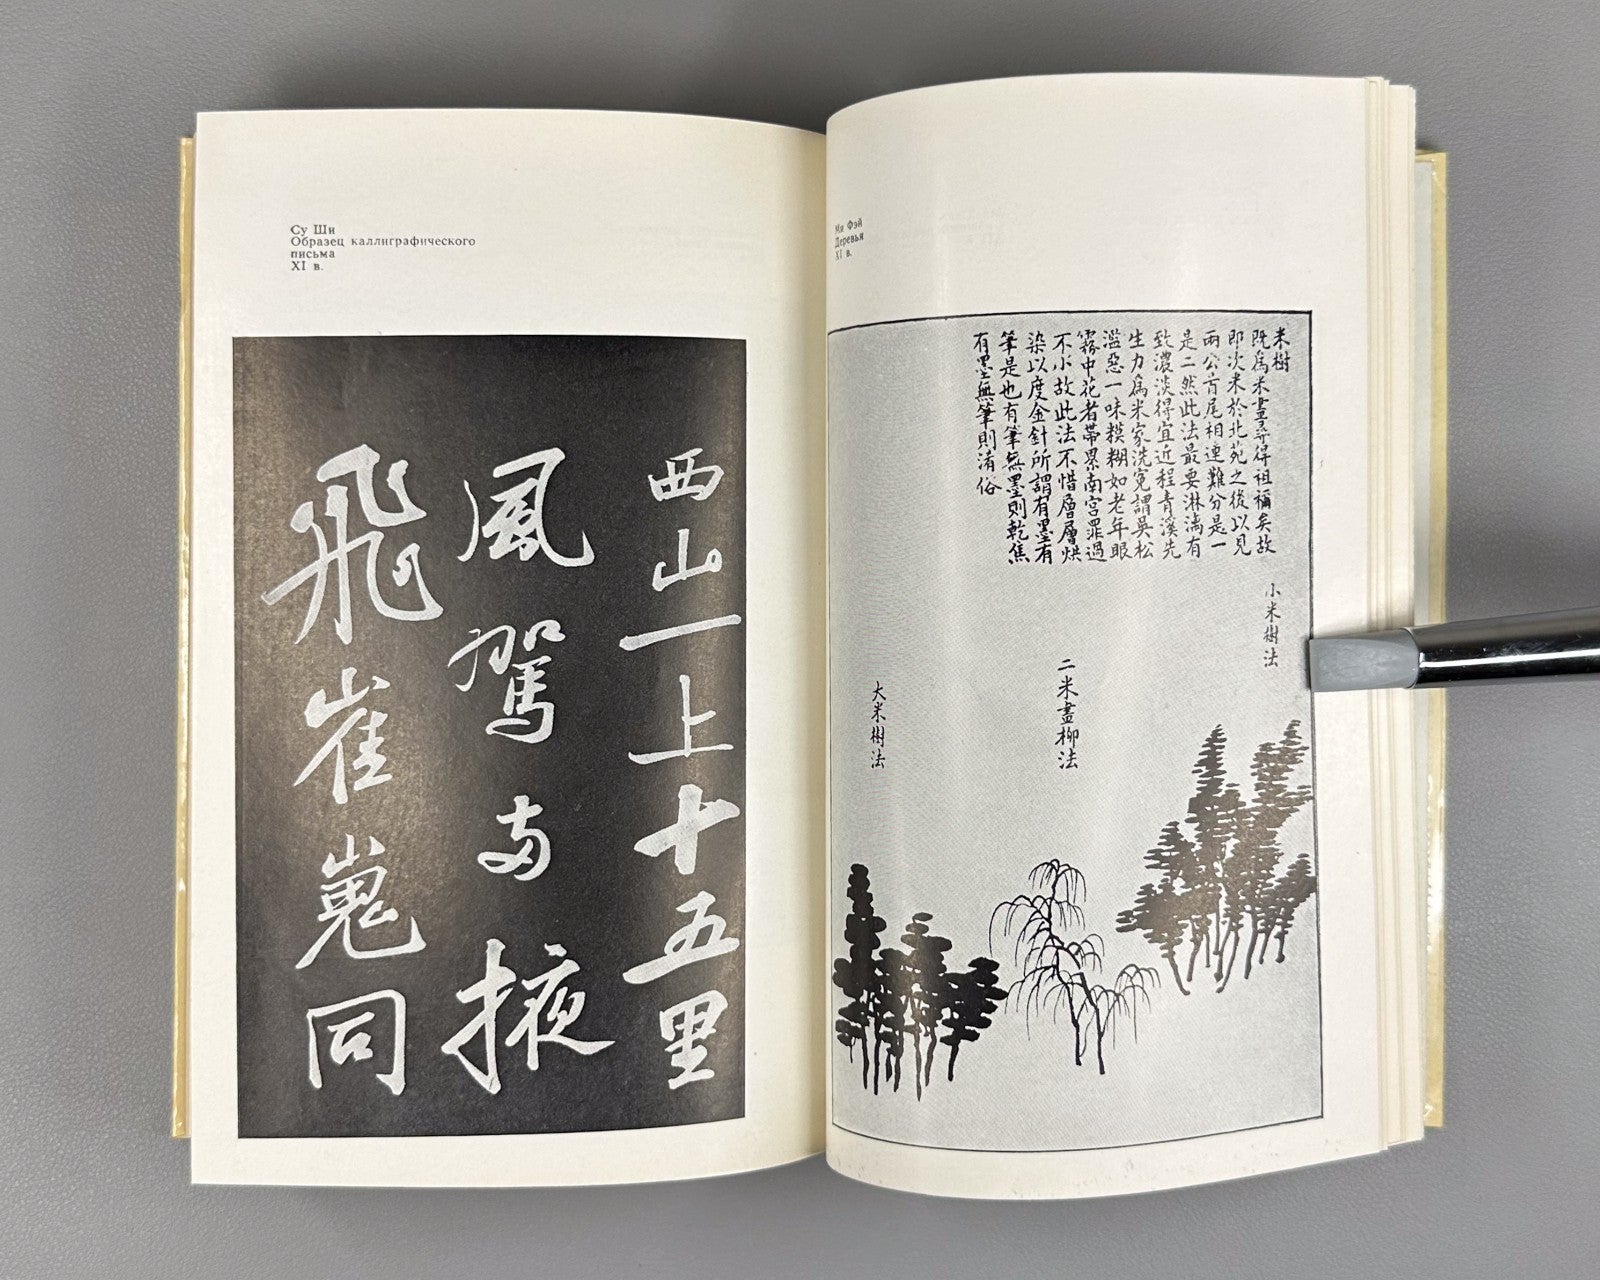 Су Ши
Образец каллиграфического
письма
XI в.
西山一上十五里
風駕兩掖
飛崔嵬同
Ми Фэй
Деревья
XI в.
米樹
既爲米畫尋得祖禰矣故
即次米於北苑之後以見
兩公首尾相連難分是一
是二然此法最要淋漓有
致濃淡得宜近程青溪先
生力爲米家洗冤謂吳松
濫惡一味糢糊如老年眼
霧中花者帶累南宮罪過
不小故此法不惜層層烘
染以度金針所謂有墨有
筆是也有筆無墨則乾焦
有墨無筆則淆俗
小米樹法
二米畫柳法
大米樹法